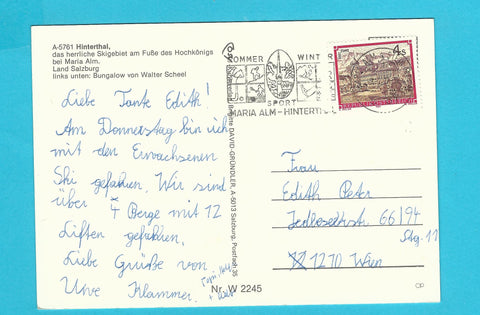 A-5761 Hinterthal,
das herrliche Skigebiet am Fuße des Hochkönigs
bei Maria Alm,
Land Salzburg
links unten: Bungalow von Walter Scheel
Liebe Tante Edith!
Am Donnerstag bin ich
mit den Erwachsenen
Ski gefahren. Wir sind
über 4 Berge mit 12
Liften gefahren.
Liebe Grüße von
Uwe Klammer.
DAVID-GRÜNDLER, A-5013 Salzburg, Postfach 35
Nr. W 2245
SOMMER WINTER
SPORT
MARIA ALM - HINTERTHAL
4 S
Frau
Edith Peter
66/94
Stg. 11
1270 Wien